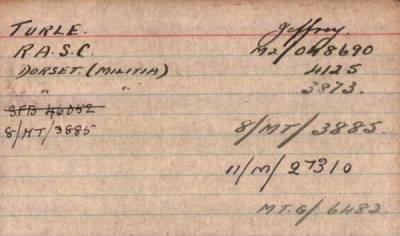 TURLE. Jeffrey.
R.A.S.C. M2/048690
DORSET. (MILITIA) 4125
" " 3873.
SFB 46052
8/MT/3885 8/MT/3885.
11/M/27310
MT.G/6482